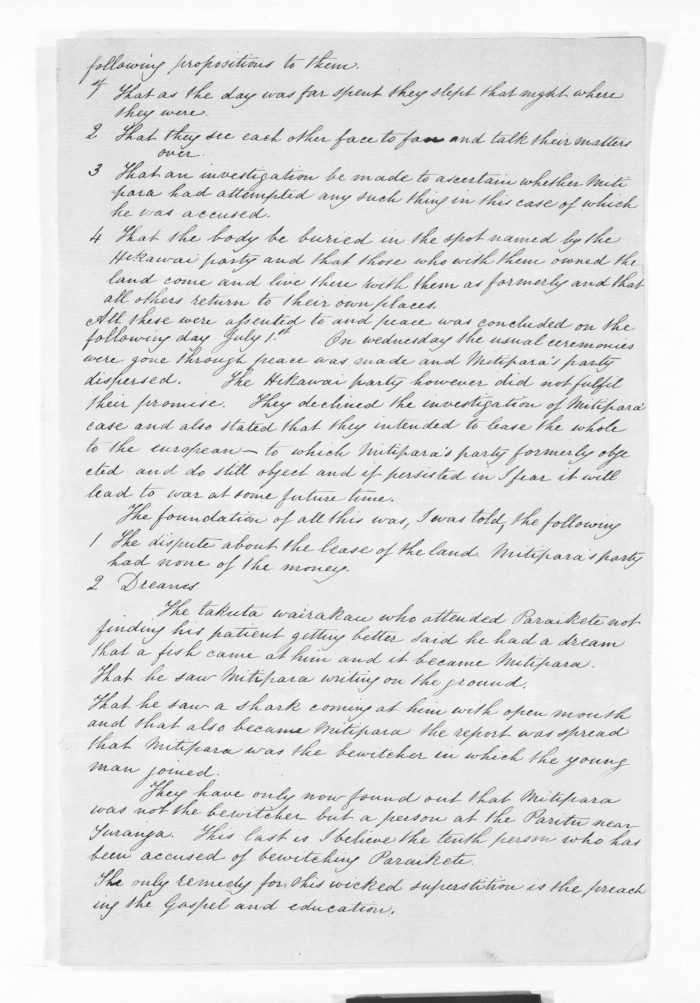 following propositions to them.
1 That as the day was far spent they slept that night where
they were.
2 That they see each other face to face and talk their matters
over.
3 That an investigation be made to ascertain whether Miti
para had attempted any such thing in this case of which
he was accused.
4 That the body be buried in the spot named by the
Hikawai party and that those who with them owned the
land come and live there with them as formerly and that
all others return to their own places.
All these were assented to and peace was concluded on the
following day July 1.st On wednesday the usual ceremonies
were gone through peace was made and Mitipara's party
dispersed. The Hikawai party however did not fulfil
their promise. They declined the investigation of Mitipara's
case and also stated that they intended to lease the whole
to the european – to which Mitipara's party formerly obje
cted and do still object and if persisted in I fear it will
lead to war at some future time.
The foundation of all this was, I was told, the following
1 The dispute about the lease of the land. Mitipara's party
had none of the money.
2 Dreams.
The takuta wairakau who attended Paraikete not
finding his patient getting better said he had a dream
that a fish came at him and it became Mitipara.
That he saw Mitipara writing on the ground.
That he saw a shark coming at him with open mouth
and that also became Mitipara the report was spread
that Mitipara was the bewitcher in which the young
man joined.
They have only now found out that Mitipara
was not the bewitcher but a person at the Paritu near
Turanga. This last is I believe the tenth person who has
been accused of bewitching Paraikete.
The only remedy for this wicked superstition is the preach
ing the Gospel and education.